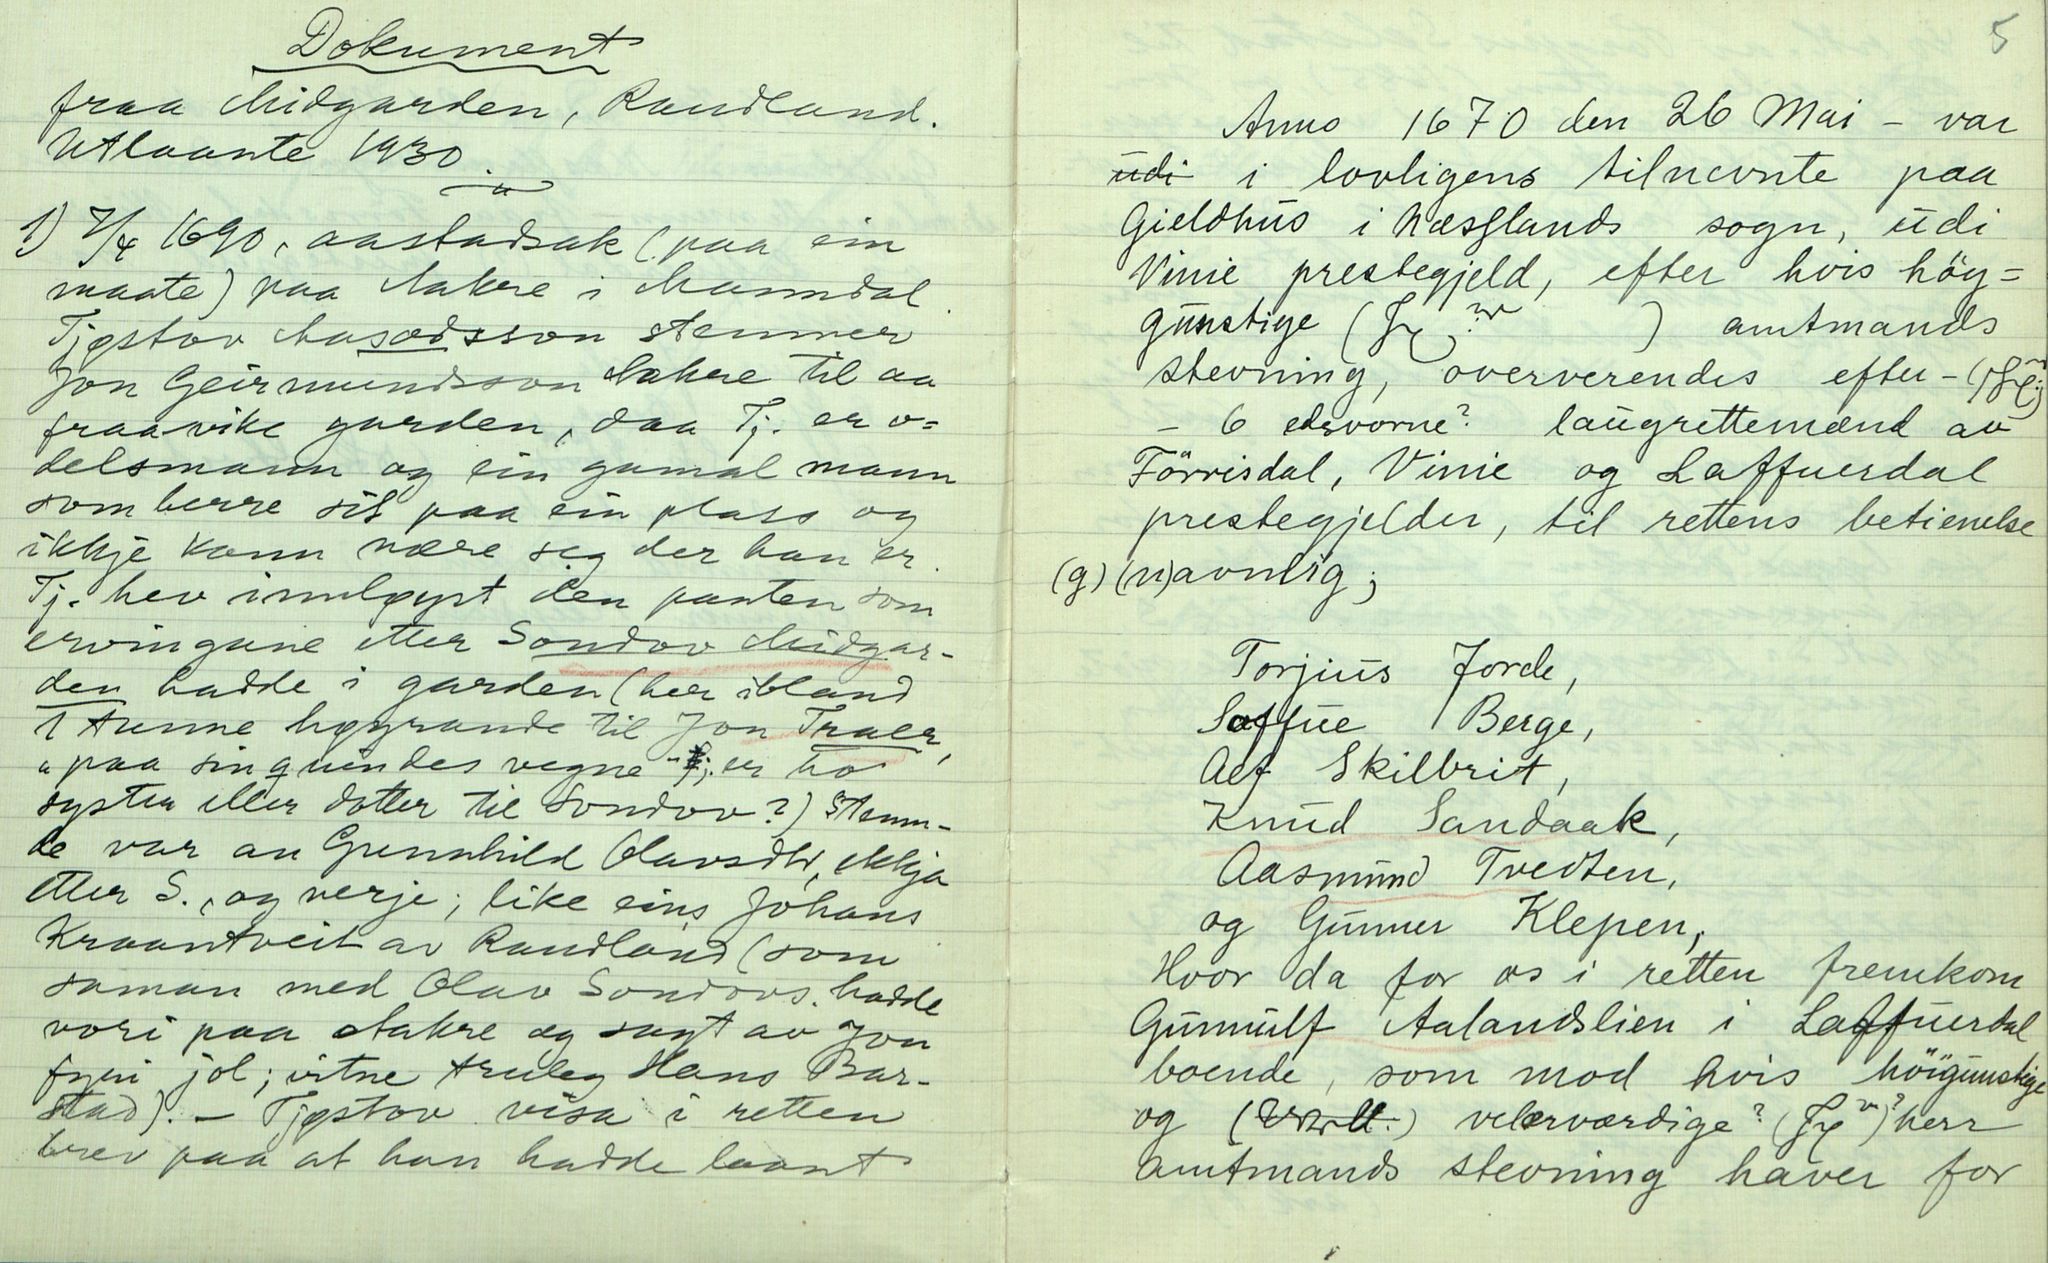 Dokument
fraa Midgarden, Raudland.
Utlaante 1930
1) 7/4 1690, aastadsak (paa ein
maate) paa Aakre i Manndal
Tjøstov Aasødsson stemner
Jon Geirmundsson Aakre til aa
fraavike garden, daa Tj. er o-
delsmann og ein gamal mann
som berre sit paa ein plass og
ikkje kann nære seg der han er.
Tj. hev innløyst den parten som
ervingane etter Sondov Midgar-
den hadde i garden (her ibland
1 tunne høyrande til Jon Traer,
"paa sin quindes vegne" er ho
syster eller dotter til Sondov?) Stemn-
de var au Gunnhild Olavsdtr, ekkja
etter S., og verje; like eins Johans
Kraantveit av Raudland (som
saman med Olav Sondovs. hadde
vori paa Aakre og sagt av Jon
fyri jol; vitne truleg Hans Bar-
stad). – Tjøstov visa i retten
brev paa at han hadde laant
5
Anno 1670 den 26 Mai – var
udi i lovligens tilnevnte paa
Gieldhus i Næsflands sogn, udi
Vinie prestegjeld, efter hvis höy=
gunstige ( ) amtmands
stevning, oververendes efter –
– 6 edsvorne? laugrettemænd av
Förrisdal, Vinie og Laffuerdal
prestegjelder, til rettens betienelse
(g) (n)avnlig;
Torjius Jorde,
Saffue Berge,
Alf Skilbrit,
Knud Sandaak,
Aasmund Tvedten,
og Gunner Klepen,
Hvor da for os i retten fremkom
Gunnulf Aalandslien i Laffuerdal
boende, som mod hvis höigunstige
og velærværdige? herr
amtmands stevning haver for